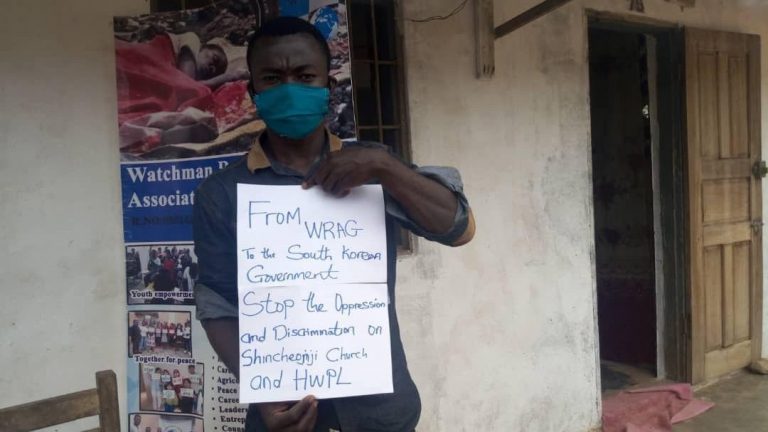 Watchman
Associat
Youth empowerment
Together for peace
FROM WRAG
To the South Korean
Government
Stop the Oppression
and Discrimination on
Shincheojiji Church
and HWPL
Agric
Peace
Career
Leaders
Entrep